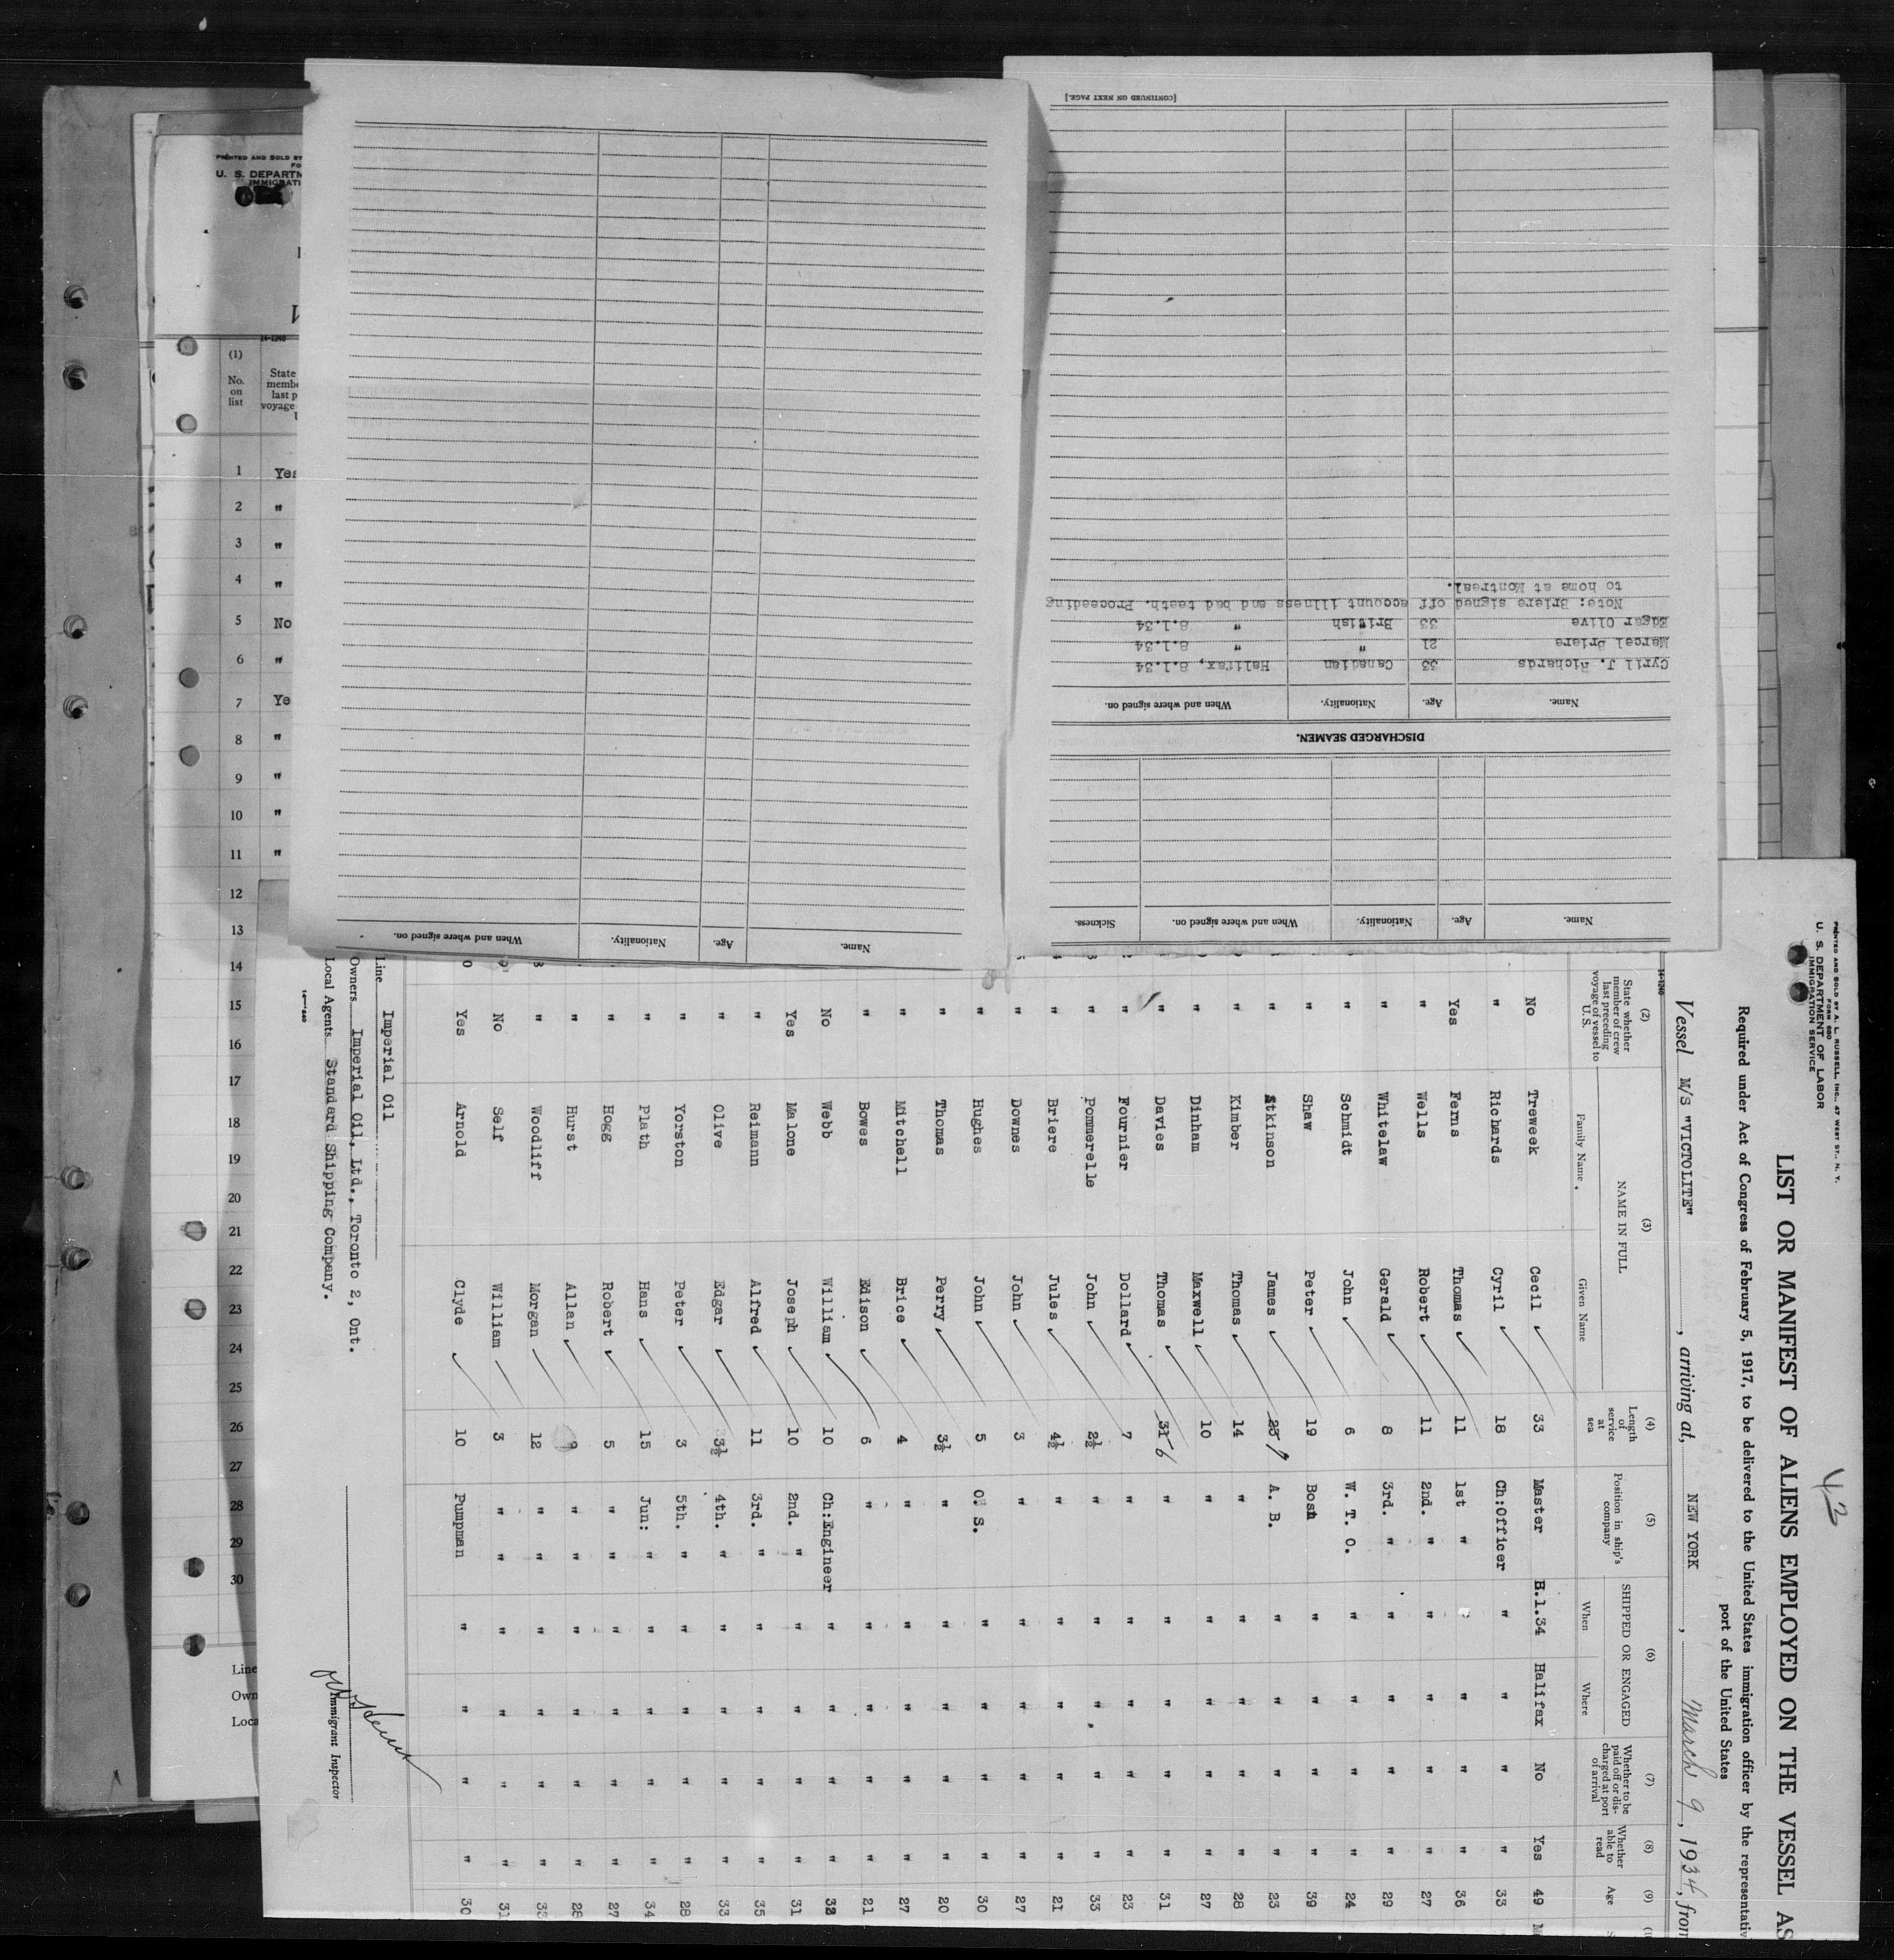 PRINTED AND SOLD BY
U. S. DEPARTM
IMMIGRATI
14-1240
(1)
No.
on
list
State
membe
last p
voyage
1 Yes
2 "
3 "
4 "
5 No
6 "
7 Ye
8 "
9 "
10 "
11 "
12
13
14
15
16
17
18
19
20
21
22
23
24
25
26
27
28
29
30
Line
Own
Loca
Name. Age. Nationality. When and where signed on.
Name. Age. Nationality. When and where signed on. Sickness.
DISCHARGED SEAMEN.
Name. Age. Nationality. When and where signed on.
Cyril J. Richards 33 Canadian Halifax, 8.1.34
Marcel Briere 21 " " 8.1.34
Edgar Olive 33 British " 8.1.34
Note: Briere signed off account illness and bad teeth. Proceeding
to home at Montreal.
[CONTINUED ON NEXT PAGE.]
PRINTED AND SOLD BY A. L. RUSSELL, INC., 47 WEST ST., N. Y.
FORM 680
U. S. DEPARTMENT OF LABOR
IMMIGRATION SERVICE
42
LIST OR MANIFEST OF ALIENS EMPLOYED ON THE VESSEL AS
Required under Act of Congress of February 5, 1917, to be delivered to the United States immigration officer by the representativ
port of the United States
Vessel M/S "VICTOLITE", arriving at, NEW YORK, March 9, 1934, from
14-1240
(2) (3) (4) (5) (6) (7) (8) (9)
State whether member of crew last preceding voyage of vessel to U. S.
NAME IN FULL
Family Name Given Name
Length of service at sea
Position in ship's company
SHIPPED OR ENGAGED
When Where
Whether to be paid off or discharged at port of arrival
Whether able to read
Age
No Treweek Cecil 33 Master 8.1.34 Halifax No Yes 49 M
" Richards Cyril 18 Ch:Officer " " " " 33
Yes Ferns Thomas 11 1st " " " " " 36
" Wells Robert 11 2nd. " " " " " 27
" Whitelaw Gerald 8 3rd. " " " " " 29
" Schmidt John 6 W. T. O. " " " " 24
" Shaw Peter 19 Bosn " " " " 39
" Atkinson James 23 A. B. " " " " 23
" Kimber Thomas 14 " " " " " 28
" Dinham Maxwell 10 " " " " " 27
" Davies Thomas 31 6 " " " " " 31
" Fournier Dollard 7 " " " " " 23
" Pommerelle John 2½ " " " " " 33
" Briere Jules 4½ " " " " " 21
" Downes John 3 " " " " " 27
" Hughes John 5 O. S. " " " " 30
" Thomas Perry 3½ " " " " " 20
" Mitchell Brice 4 " " " " " 27
" Bowes Edison 6 " " " " " 21
No Webb William 10 Ch:Engineer " " " " 32
Yes Malone Joseph 10 2nd. " " " " " 31
" Reimann Alfred 11 3rd. " " " " " 35
" Olive Edgar 3½ 4th. " " " " " 33
" Yorston Peter 3 5th. " " " " " 28
" Plath Hans 15 Jun: " " " " " 34
" Hogg Robert 5 " " " " " " 27
" Hurst Allan 9 " " " " " " 28
" Woodliff Morgan 12 " " " " " "
No Self William 3 " " " " " " 31
Yes Arnold Clyde 10 Pumpman " " " " 30
Line Imperial Oil
Owners Imperial Oil, Ltd., Toronto 2, Ont.
Local Agents Standard Shipping Company.
Immigrant Inspector